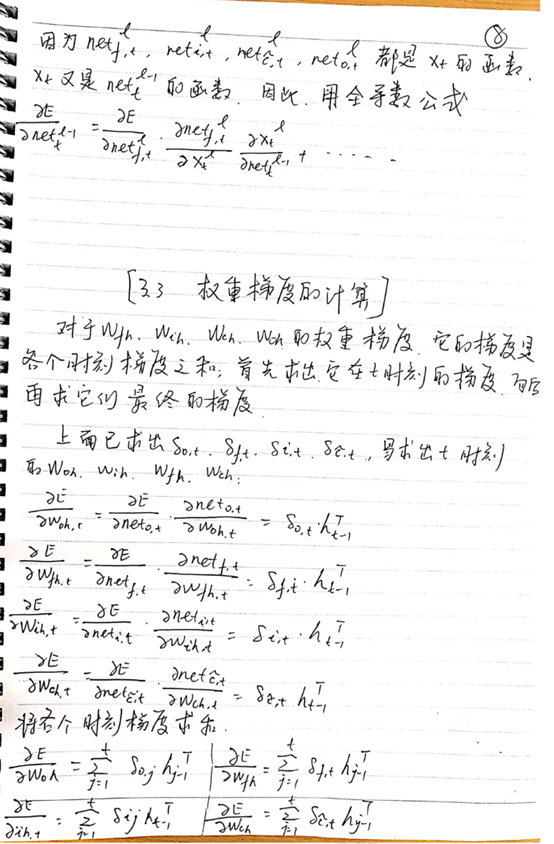 ⑧
因为 net_{f,t}^l, net_{i,t}^l, net_{c̃,t}^l, net_{o,t}^l 都是 x_t 的函数.
x_t 又是 net_t^{l-1} 的函数. 因此. 用全导数公式
∂E/∂net_t^{l-1} = ∂E/∂net_{f,t}^l · ∂net_{f,t}^l/∂x_t^l ∂x_t^l/∂net_t^{l-1} + ······
[3.3 权重梯度的计算]
对于 W_{fh}、W_{ih}、W_{ch}、W_{oh} 的权重梯度. 它的梯度是
各个时刻梯度之和; 首先求出它在 t 时刻的梯度, 而后
再求它们最终的梯度.
上面已求出 δ_{o,t}、δ_{f,t}、δ_{i,t}、δ_{c̃,t},
求出 t 时刻
的 W_{oh}、W_{ih}、W_{fh}、W_{ch}:
∂E/∂W_{oh,t} = ∂E/∂net_{o,t} · ∂net_{o,t}/∂W_{oh,t} = δ_{o,t} · h_{t-1}^T
∂E/∂W_{fh,t} = ∂E/∂net_{f,t} · ∂net_{f,t}/∂W_{fh,t} = δ_{f,t} · h_{t-1}^T
∂E/∂W_{ih,t} = ∂E/∂net_{i,t} · ∂net_{i,t}/∂W_{ih,t} = δ_{i,t} · h_{t-1}^T
∂E/∂W_{ch,t} = ∂E/∂net_{c̃,t} · ∂net_{c̃,t}/∂W_{ch,t} = δ_{c̃,t} h_{t-1}^T
将各个时刻梯度求和.
∂E/∂W_{oh} = Σ_{j=1}^t δ_{o,j} h_{j-1}^T | ∂E/∂W_{fh} = Σ_{j=1}^t δ_{f,t} h_{j-1}^T
∂E/∂ih,t = Σ_{j=1}^t δ_{ij} h_{t-1}^T | ∂E/∂W_{ch} = Σ_{j=1}^t δ_{c̃,t} h_{j-1}^T